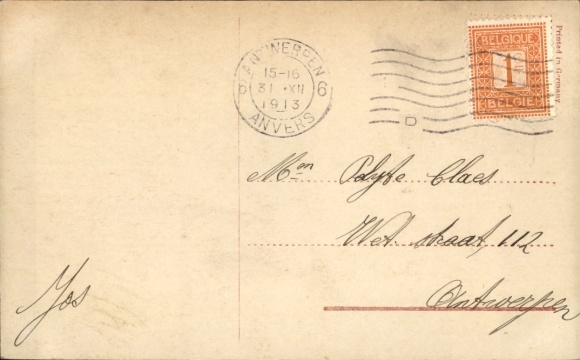 ANTWERPEN 6
15-16
31 XII
1913
ANVERS
D
BELGIQUE
1
BELGIË
Printed in Germany
Mon Claes
Wet. straat, 112
Antwerpen
Jos